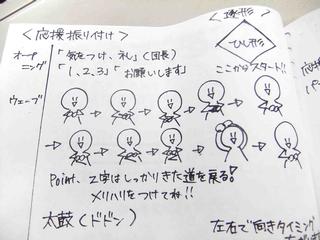 <応援振り付け>
<隊形>
ひし形
ここからスタート!!
オープニング
「気をつけ、礼」(団長)
「1,2,3」「お願いします」
ウェーブ
Point、Z字はしっかりきた道を戻る!
メリハリをつけてね!!
太鼓(ドドン)
左右で向きタイミング